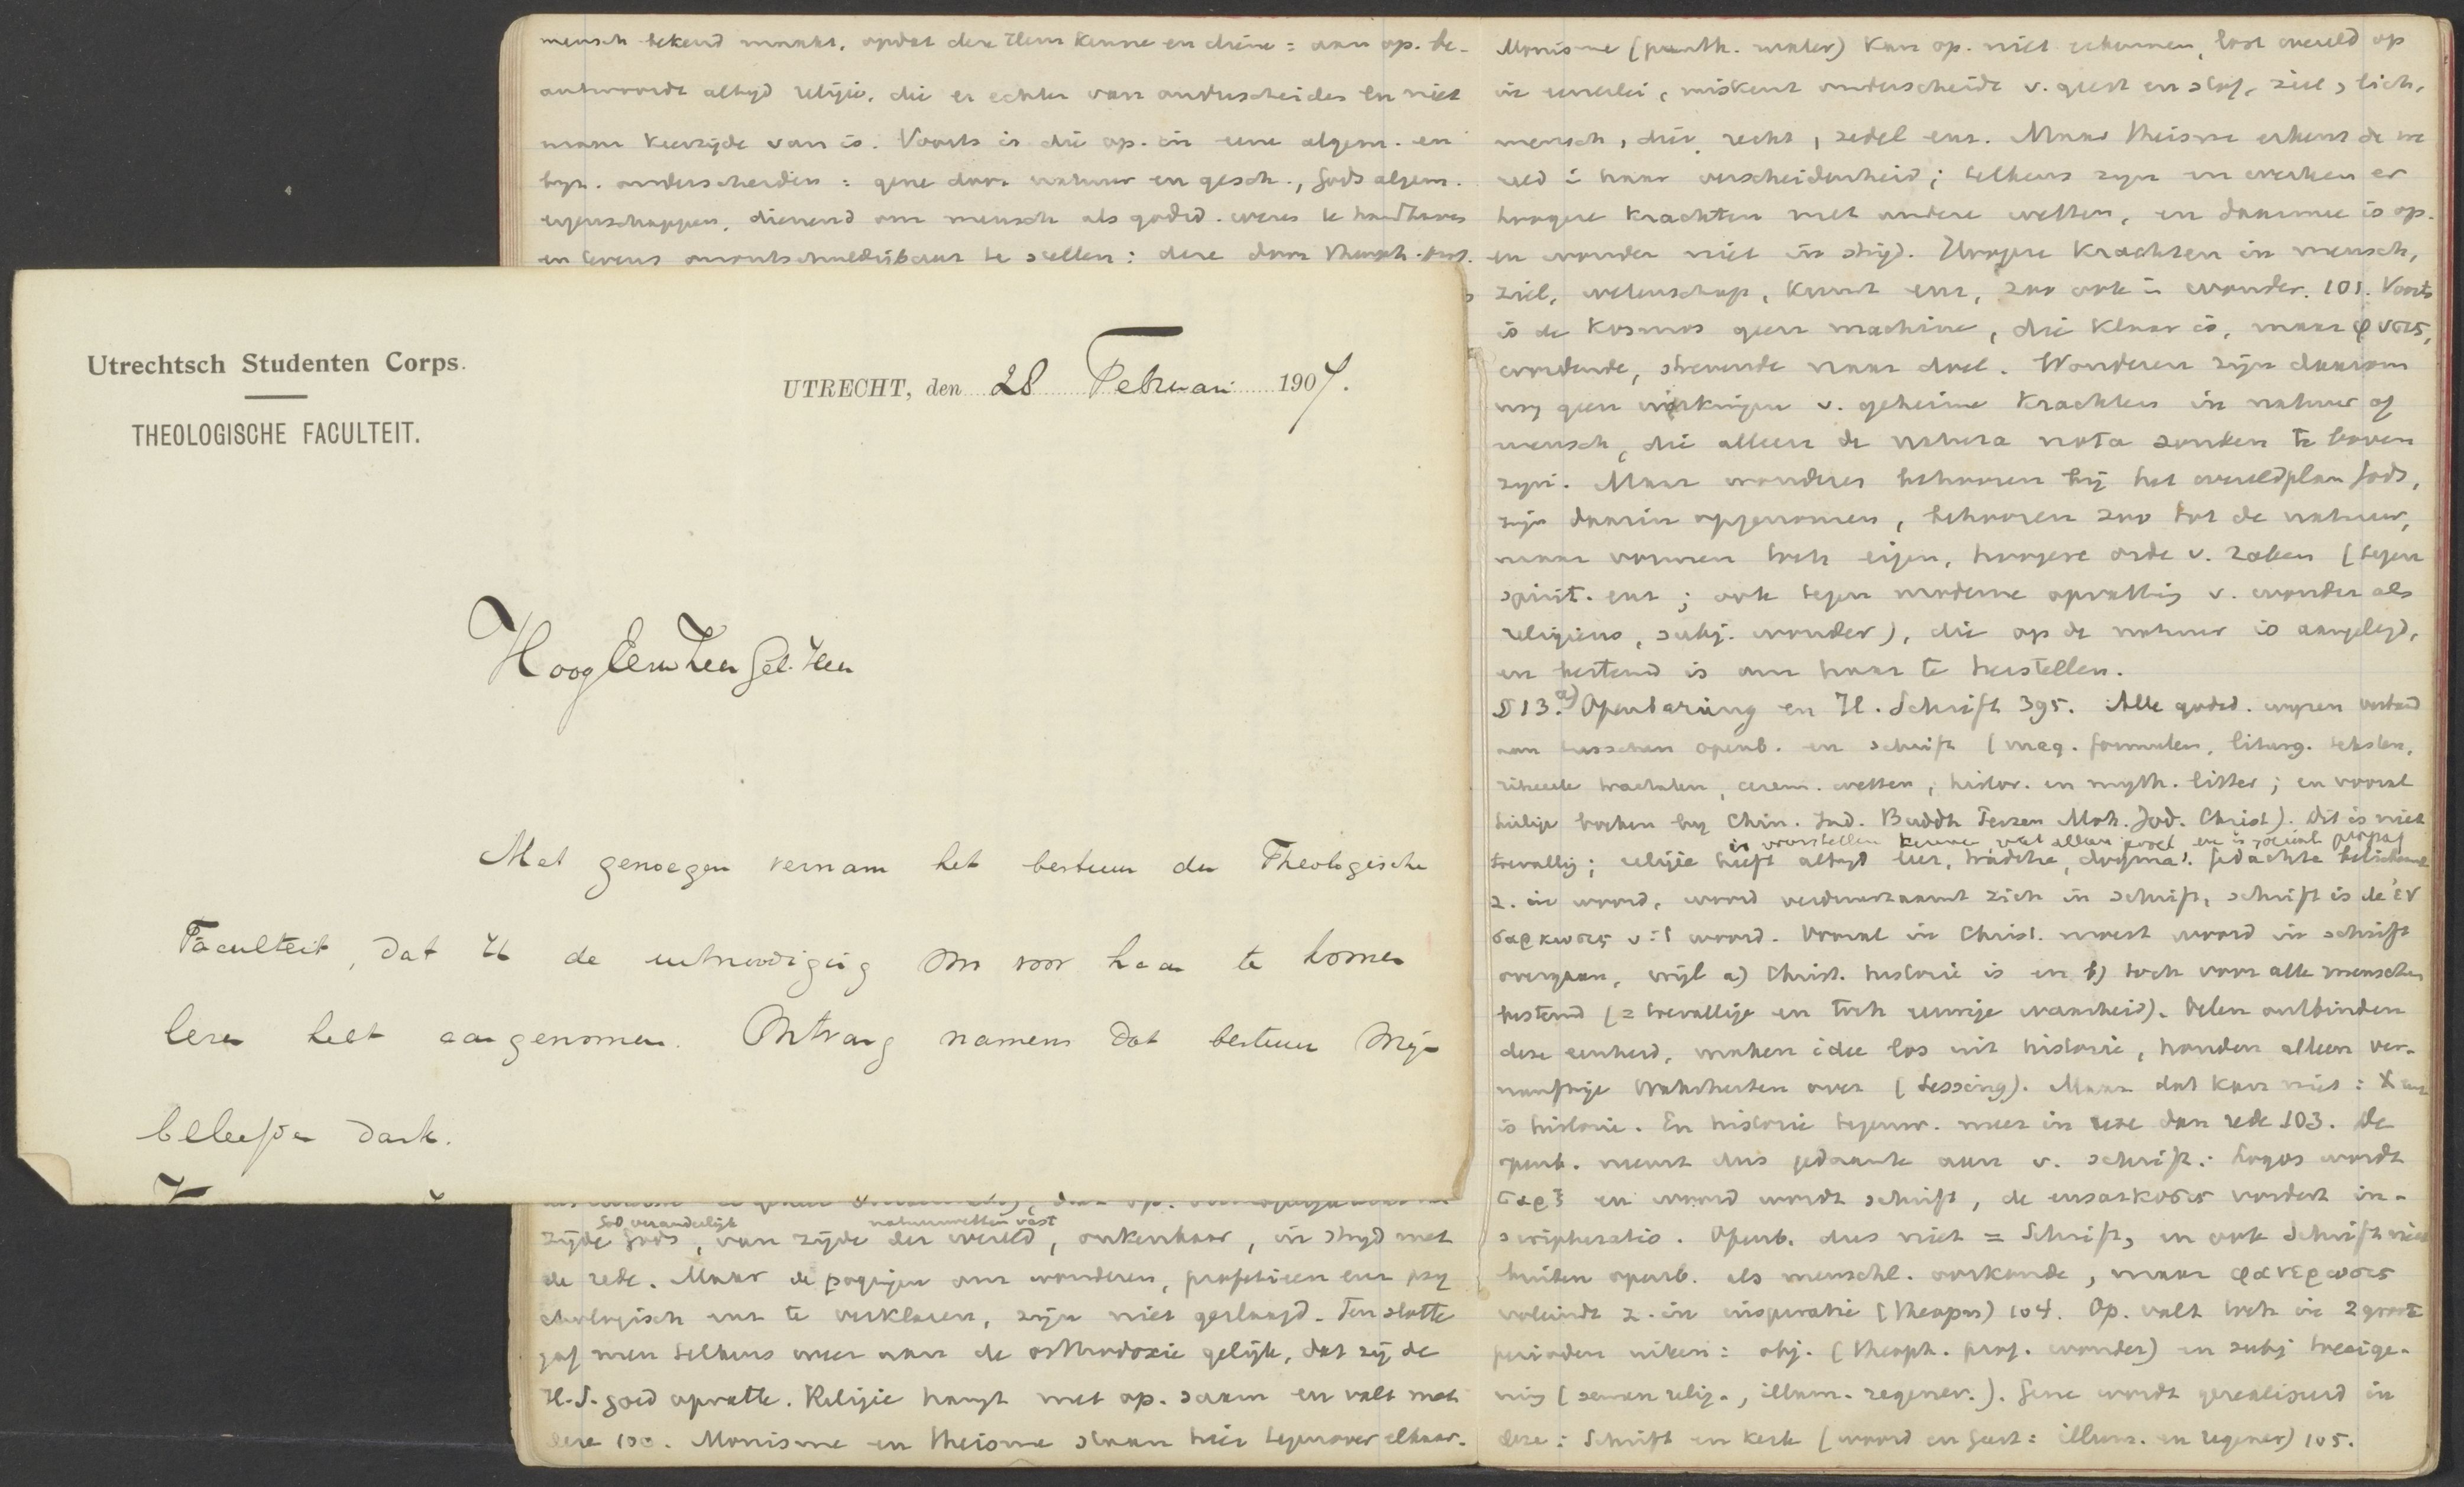 mensch bekend maakt, opdat deze Hem kenne en diene = aan op. be-
antwoordt altyd religie, die er echter van onderscheiden en niet
maar keerzijde van is. Voorts is die op. in eene algem. en
byz. onderscheiden = gene door natuur en gesch., Gods algem.
eigenschappen, dienend om mensch als godsd. wezen te handhaven
en tevens onontschuldigbaar te stellen: deze door
Utrechtsch Studenten Corps.
THEOLOGISCHE FACULTEIT.
UTRECHT, den 28 Februari 1907.
HoogEerwZeerGel. Heer
Met genoegen vernam het bestuur der Theologische
Faculteit, dat U de uitnoodiging om voor haar te komen
lezen hebt aangenomen. Ontvang namens dat bestuur mijn
beleefden dank.
God veranderlijk natuurwetten vast
zijde Gods, van zijde der wereld, onkenbaar, in stryd met
de rede. Maar de pogingen om wonderen, profetieen enz psy
chologisch enz te verklaren, zijn niet geslaagd. Ten slotte
gaf men telkens weer aan de orthodoxie gelijk, dat zij de
H.S. goed opvatte. Religie hangt met op. saam en valt met
deze 100. Monisme en theisme staan hier tegenover elkaar.
Monisme (panth. mater) kan op. niet erkennen, lost wereld op
in eenerlei, miskent onderscheide v. geest en stof, ziel, lich,
mensch, dier, recht, zedel enz. Maar theisme erkent de we
reld in haar verscheidenheid; telkens zyn en werken er
hoogere krachten met andere wetten, en daarmee is op.
en wonder niet in strijd. Hoogere krachten in mensch,
ziel, wetenschap, kunst enz, zoo ook in wonder. 101. Voorts
is de kosmos geen machine, die klaar is, maar φυσις,
wordende, strevende naar doel. Wonderen zijn daarom
nog geen werkingen v. geheime krachten in natuur of
mensch, die alleen de natura nota zouden te boven
zyn. Maar wonderen behooren bij het wereldplan Gods,
zijn daarin opgenomen, behooren zoo tot de natuur,
maar vormen toch eigen, hoogere orde v. zaken (tegen
spirit. enz; ook tegen moderne opvatting v. wonder als
religieus, subj. wonder), die op de natuur is aangelegd,
en bestemd is om haar te herstellen.
§ 13. a) Openbaring en H. Schrift 395. Alle godsd. wyzen verband
aan tusschen openb. en schrift (mag. formulen, liturg. teksten,
ritueele tractaten, cerem. wetten, histor. en myth. litter; en vooral
heilige boeken by Chin. Ind. Buddh Perzen Moh. Jod. Christ). Dit is niet
toevallig; religie heeft altyd leer, traditie, dogma. Gedachte belichaamt
z. in woord, woord verduurzaamt zich in schrift, schrift is de ἐν
σαρκωσις v: 't woord. Vooral in Christ. moest woord in schrift
overgaan, wijl a) Christ. historie is en b) toch voor alle menschen
bestemd (= toevallige en toch eeuwige waarheid). Velen ontbinden
deze eenheid, maken idee los uit historie, houden alleen ver-
nunftige Wahrheiten over (Lessing). Maar dat kan niet: X
is historie. En historie tegenw. meer in eere dan rede 103. De
openb. neemt dus gedaante aan v. schrift: Logos wordt
σαρξ en woord wordt schrift, de ensarkosis vordert in-
scripturatio. Openb. dus niet = Schrift, en ook Schrift niet
buiten openb. als menschl. oorkonde, maar φανερωσις
voleindt z. in inspiratie (theopn) 104. Op. valt toch in 2 groote
perioden uiteen: obj. (theoph. prof. wonder) en subj toeeige-
ning (semen relig., illum. regener.). Gene wordt gerealiseerd in
deze: Schrift en kerk (woord en geest: illum. en regener) 105.